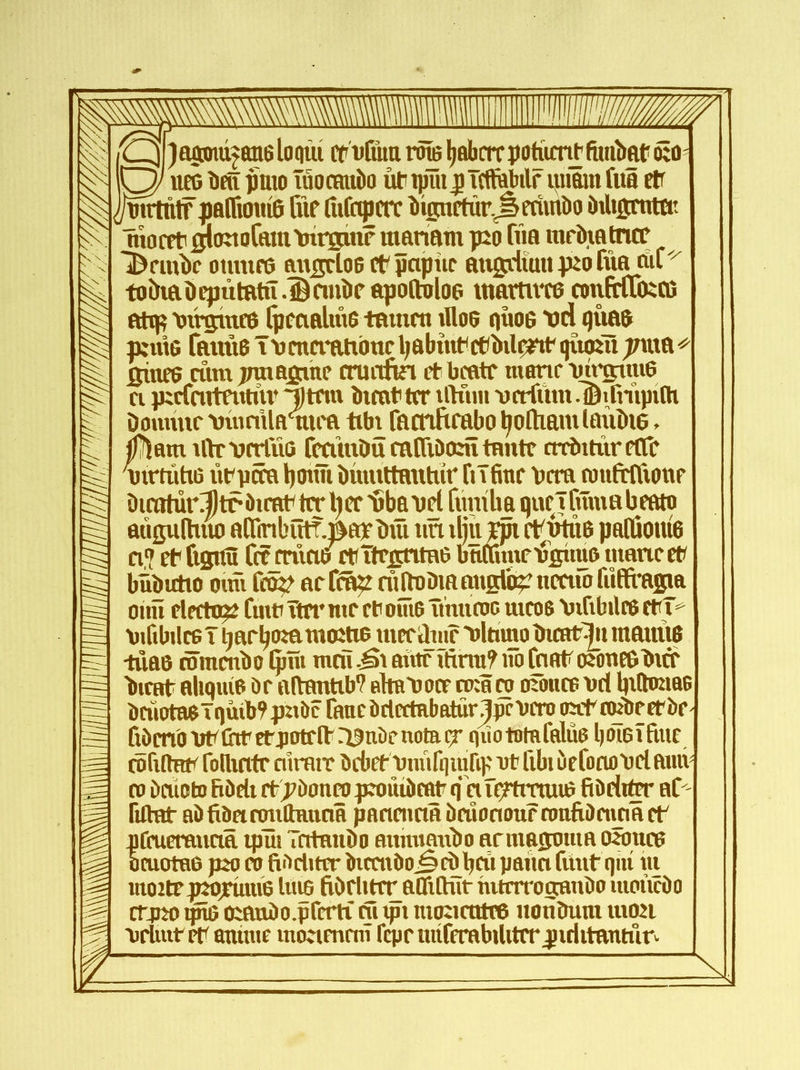 Si agonizans loqui et usum rōis habere potuerit fundat oro-
nes deū primo iuocando ut ipm̄ p ieffabile miam suā et
virtute passionis sue suscipere dignetur. Secundo diligenter
inocet gloriosam virginē mariam pro sua mediatrice
Deinde omnes angelos et p̄cipue angelum pro sua cus-
todia deputatū. Deinde apostolos martires confessores
atq virgines specialius tamen illos quos vel quas
prius sanus ī veneratione habuit et dilexit quorū yma-
gines cum ymagine crucifixi et beate marie virginis
ei presententur Item dicat ter istum versum. Dirupisti
domine vincula mea tibi sacrificabo hostiam laudis.
Nam iste versus secundū cassiodorū tante creditur esse
virtutis ut pcca hoīm dimittantur si ī fine vera confessione
dicatur. Ite dicat ter hec vba vel similia que ī suma beato
augustino ascribunt. Pax dn̄i nr̄i ihū xpi et vtus passionis
ei9 et signū scē crucis et ītegritas btissime vginis marie et
bn̄dictio oīm scōz ac scāz custodia angeloz necnō suffragia
oīm electoz sint īter me et om̄s inimicos meos visibiles et ī-
visibiles ī hac hora mortis mee amē Vltimo dicat In manus
tuas cōmendo spm̄ meū. Si autē īfirm9 nō sciat orōnes dicē
dicat aliquis de astantib9 alta voce corā eo orōnes vel historias
deuotas ī quib9 pridē sane delectabatur. Ipe vero oret corde et de-
siderio vt scit et potest Vnde nota cr quo tota salus hoīs ī fine
cōsistat sollicite curare debet vnusquisq vt sibi de socio vel amic
co deuoto fideli et ydoneo prouideat q ei ī extremis fideliter as-
sistat ad fidei constantiā pacienciā deuocionē confidenciā et
pseueranciā ipm̄ īcitando animando ac in agonia orōnes
deuotas pro eo fideliter dicendo Sed heu pauci sunt qui in
morte proximis suis fideliter assistūt interrogando monēdo
et pro ipis orando. p̄serti cū ipi morientes nondum mori
velint et anime morienciū sepe miserabiliter piclitantur.